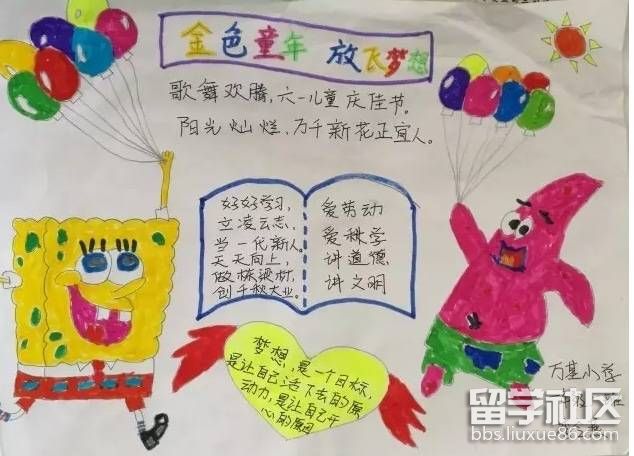 金色童年 放飞梦想
歌舞欢腾，六一儿童庆佳节。
阳光灿烂，万千新花正宜人。
好好学习，
立凌云志，
当一代新人。
天天向上，
做栋梁材，
创千秋大业。
爱劳动
爱科学
讲道德
讲文明
梦想，是一个目标，
是让自己活下去的原
动力，是让自己开
心的原因
万基小学
留学社区
bbs.liuxue86.com